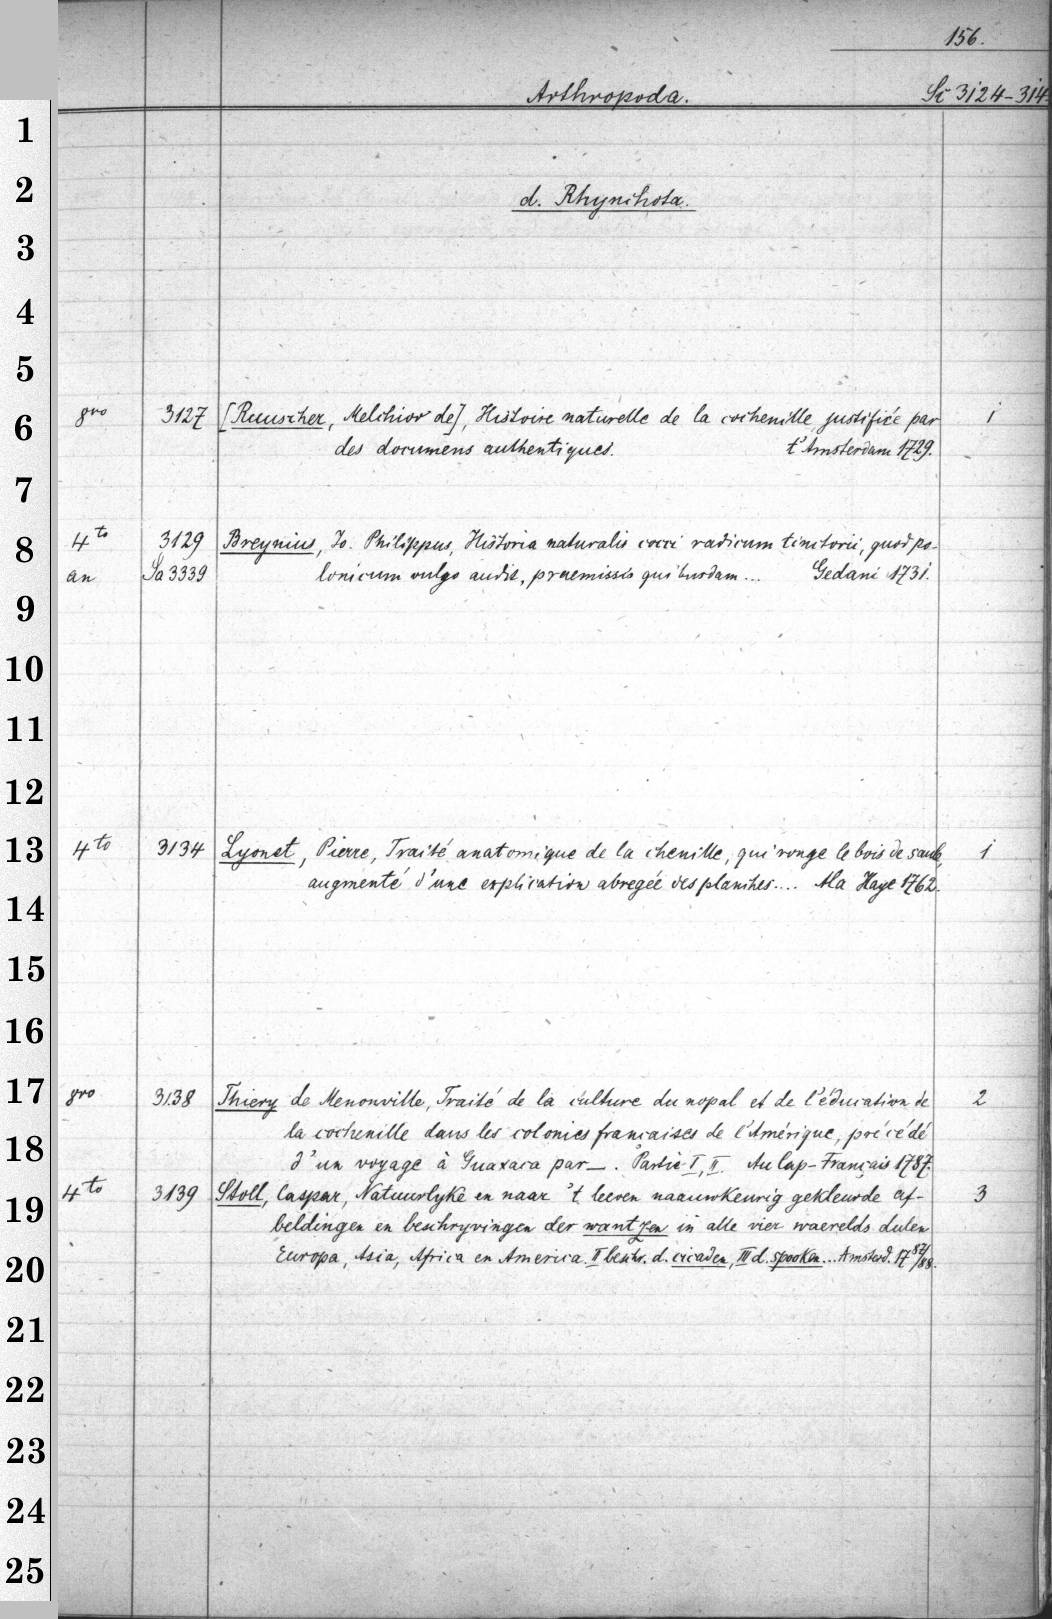 156.
Arthropoda. Si 3124-314
1
2 d. Rhynchota.
3
4
5
6 8vo 3127 [Ruuscher, Melchior de], Histoire naturelle de la cochenille justifiée par 1
des documens authentiques. t'Amsterdam 1729.
7
8 4to 3129 Breynius, Jo. Philippus, Historia naturalis cocci radicum tinctorii, quod po-
an Sa 3339 lonicum vulgo audit, praemissis quibusdam ... Gedani 1731.
9
10
11
12
13 4to 3134 Lyonet, Pierre, Traité anatomique de la chenille, qui ronge le bois de saule, 1
augmenté d'une explication abregée des planches.... A la Haye 1762.
14
15
16
17 8vo 3138 Thiery de Menonville, Traité de la culture du nopal et de l'éducation de 2
18 la cochenille dans les colonies françaises de l'Amérique, précédé
d'un voyage à Guaxaca par—. Partie I, II. Au Cap-Français 1787.
19 4to 3139 Stoll, Caspar, Natuurlyke en naar 't leeven naauwkeurig gekleurde af- 3
beldingen en beschryvingen der wantzen in alle vier waerelds deelen
20 Europa, Asia, Africa en America. II beschr. d. cicaden, III d. spooken... Amsterd. 1787/88.
21
22
23
24
25